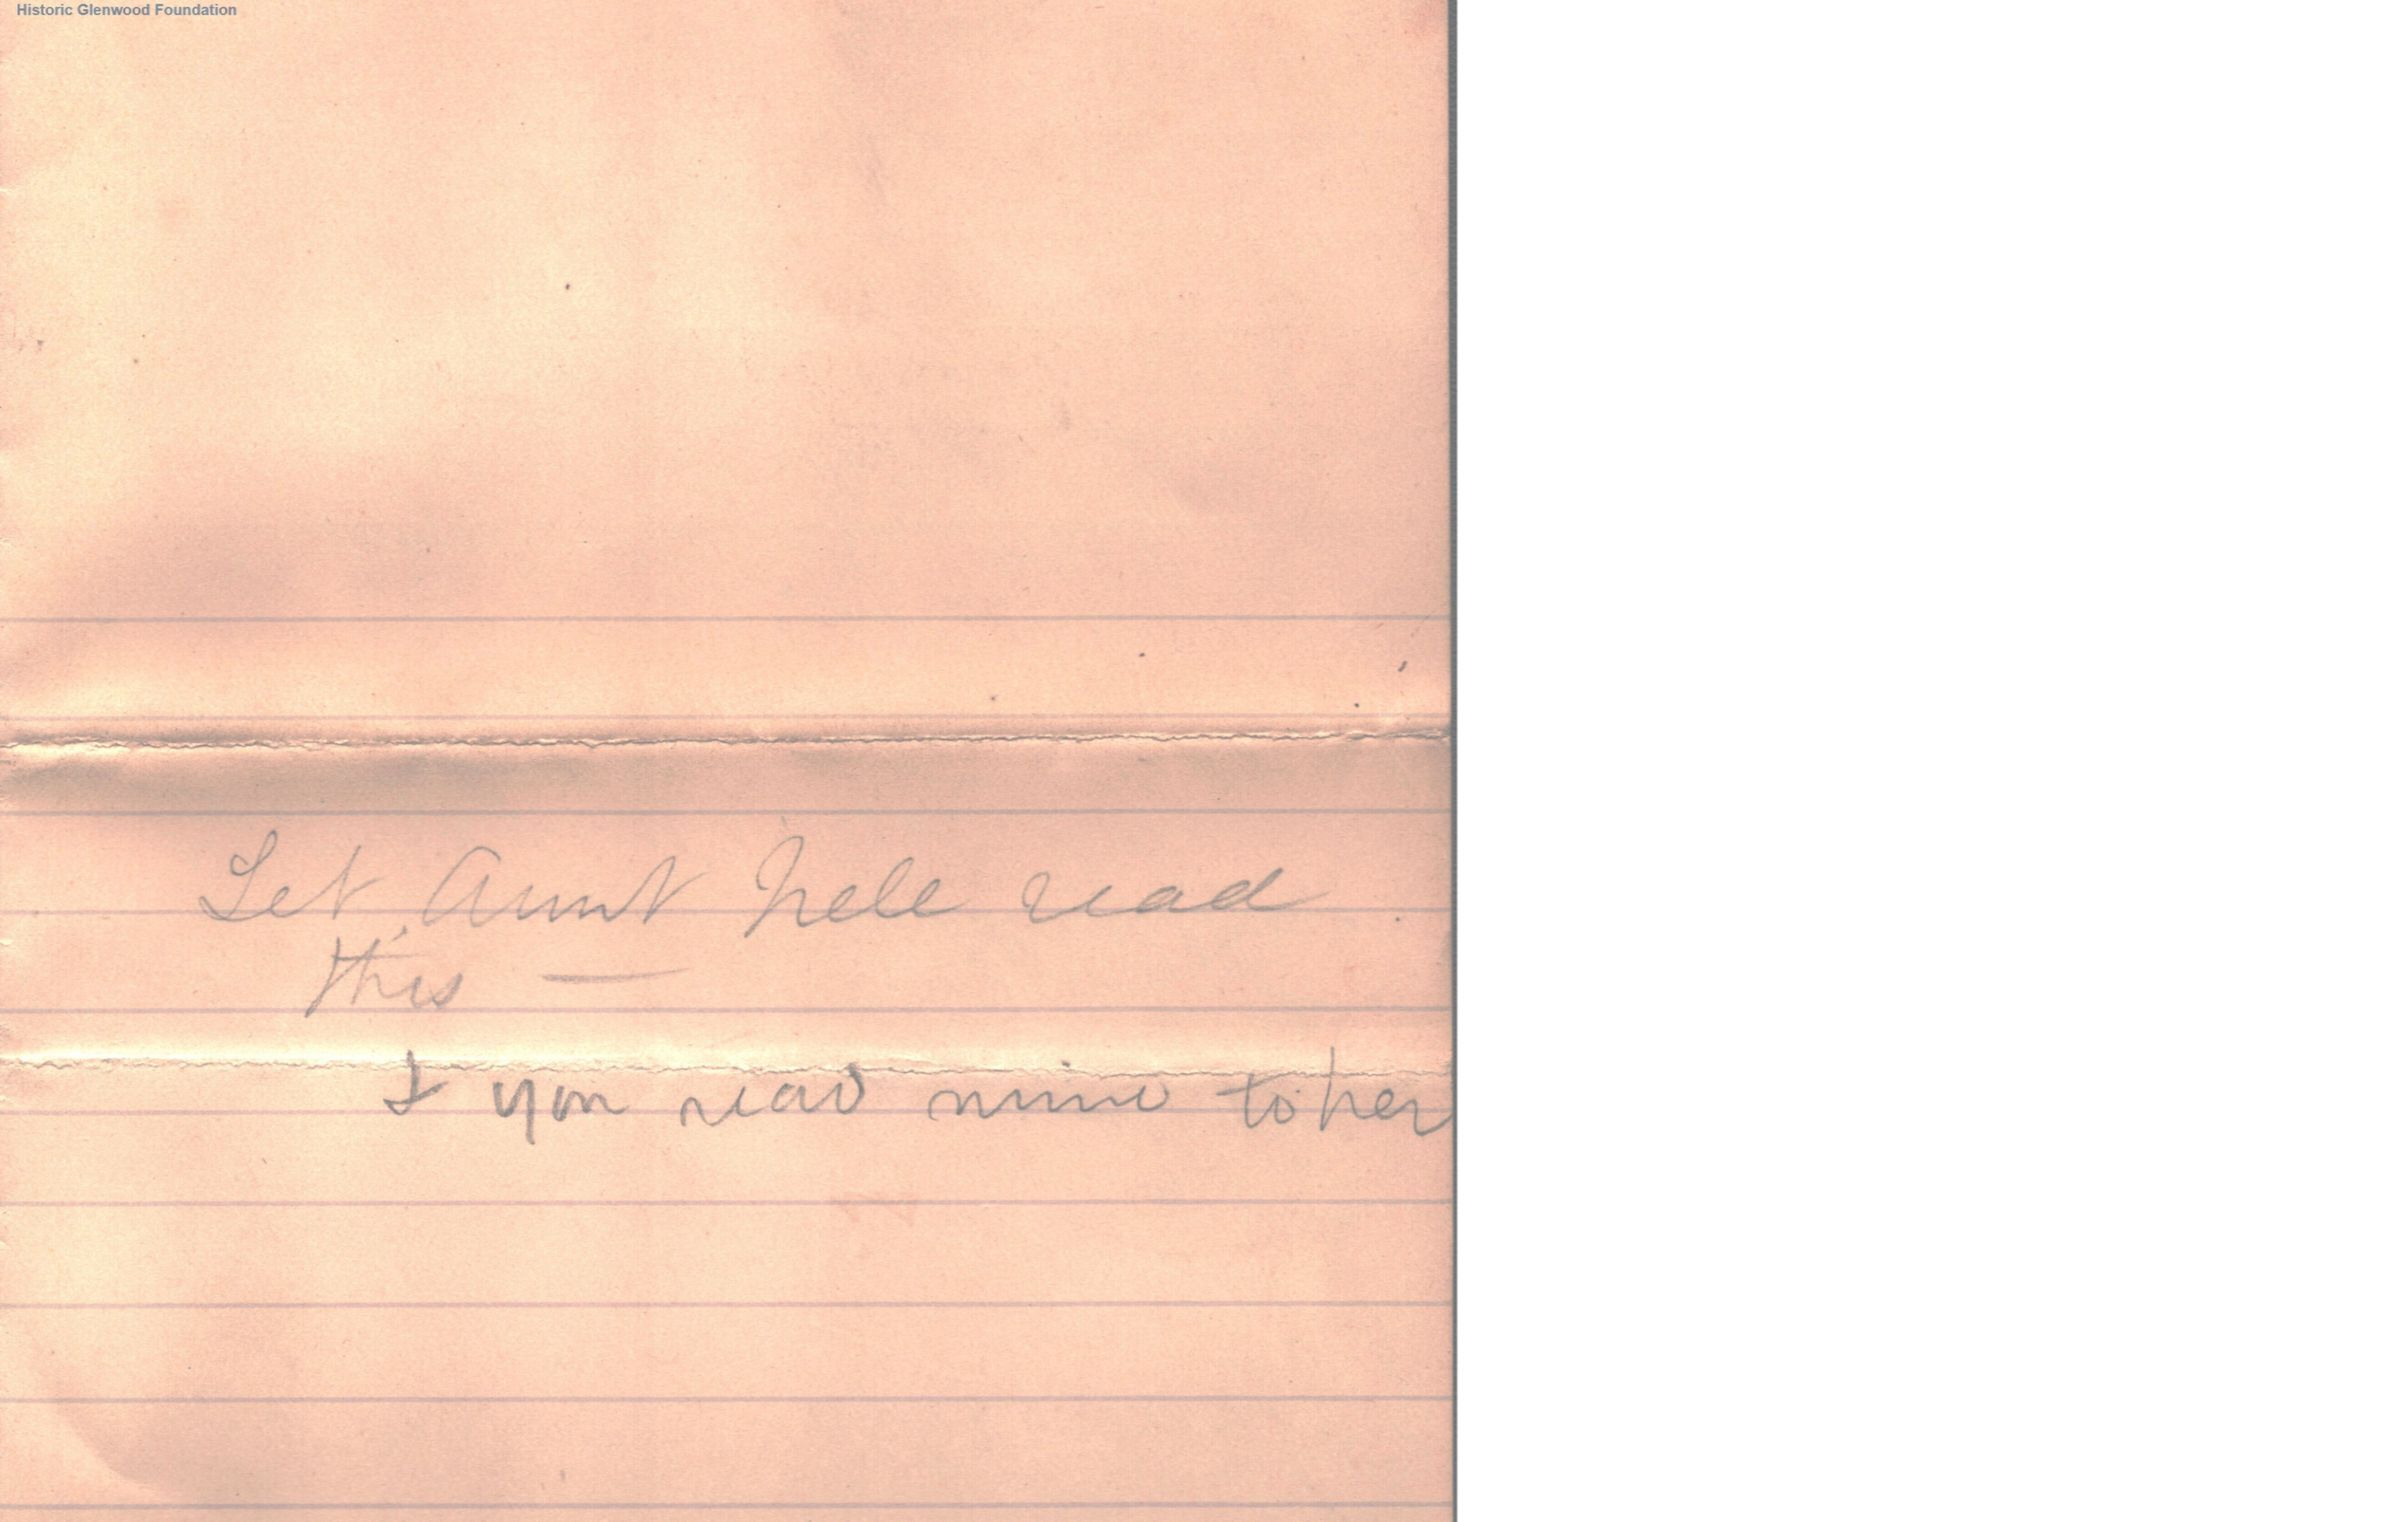 Historic Glenwood Foundation
Let Aunt Nell read
this —
& you read mine to her